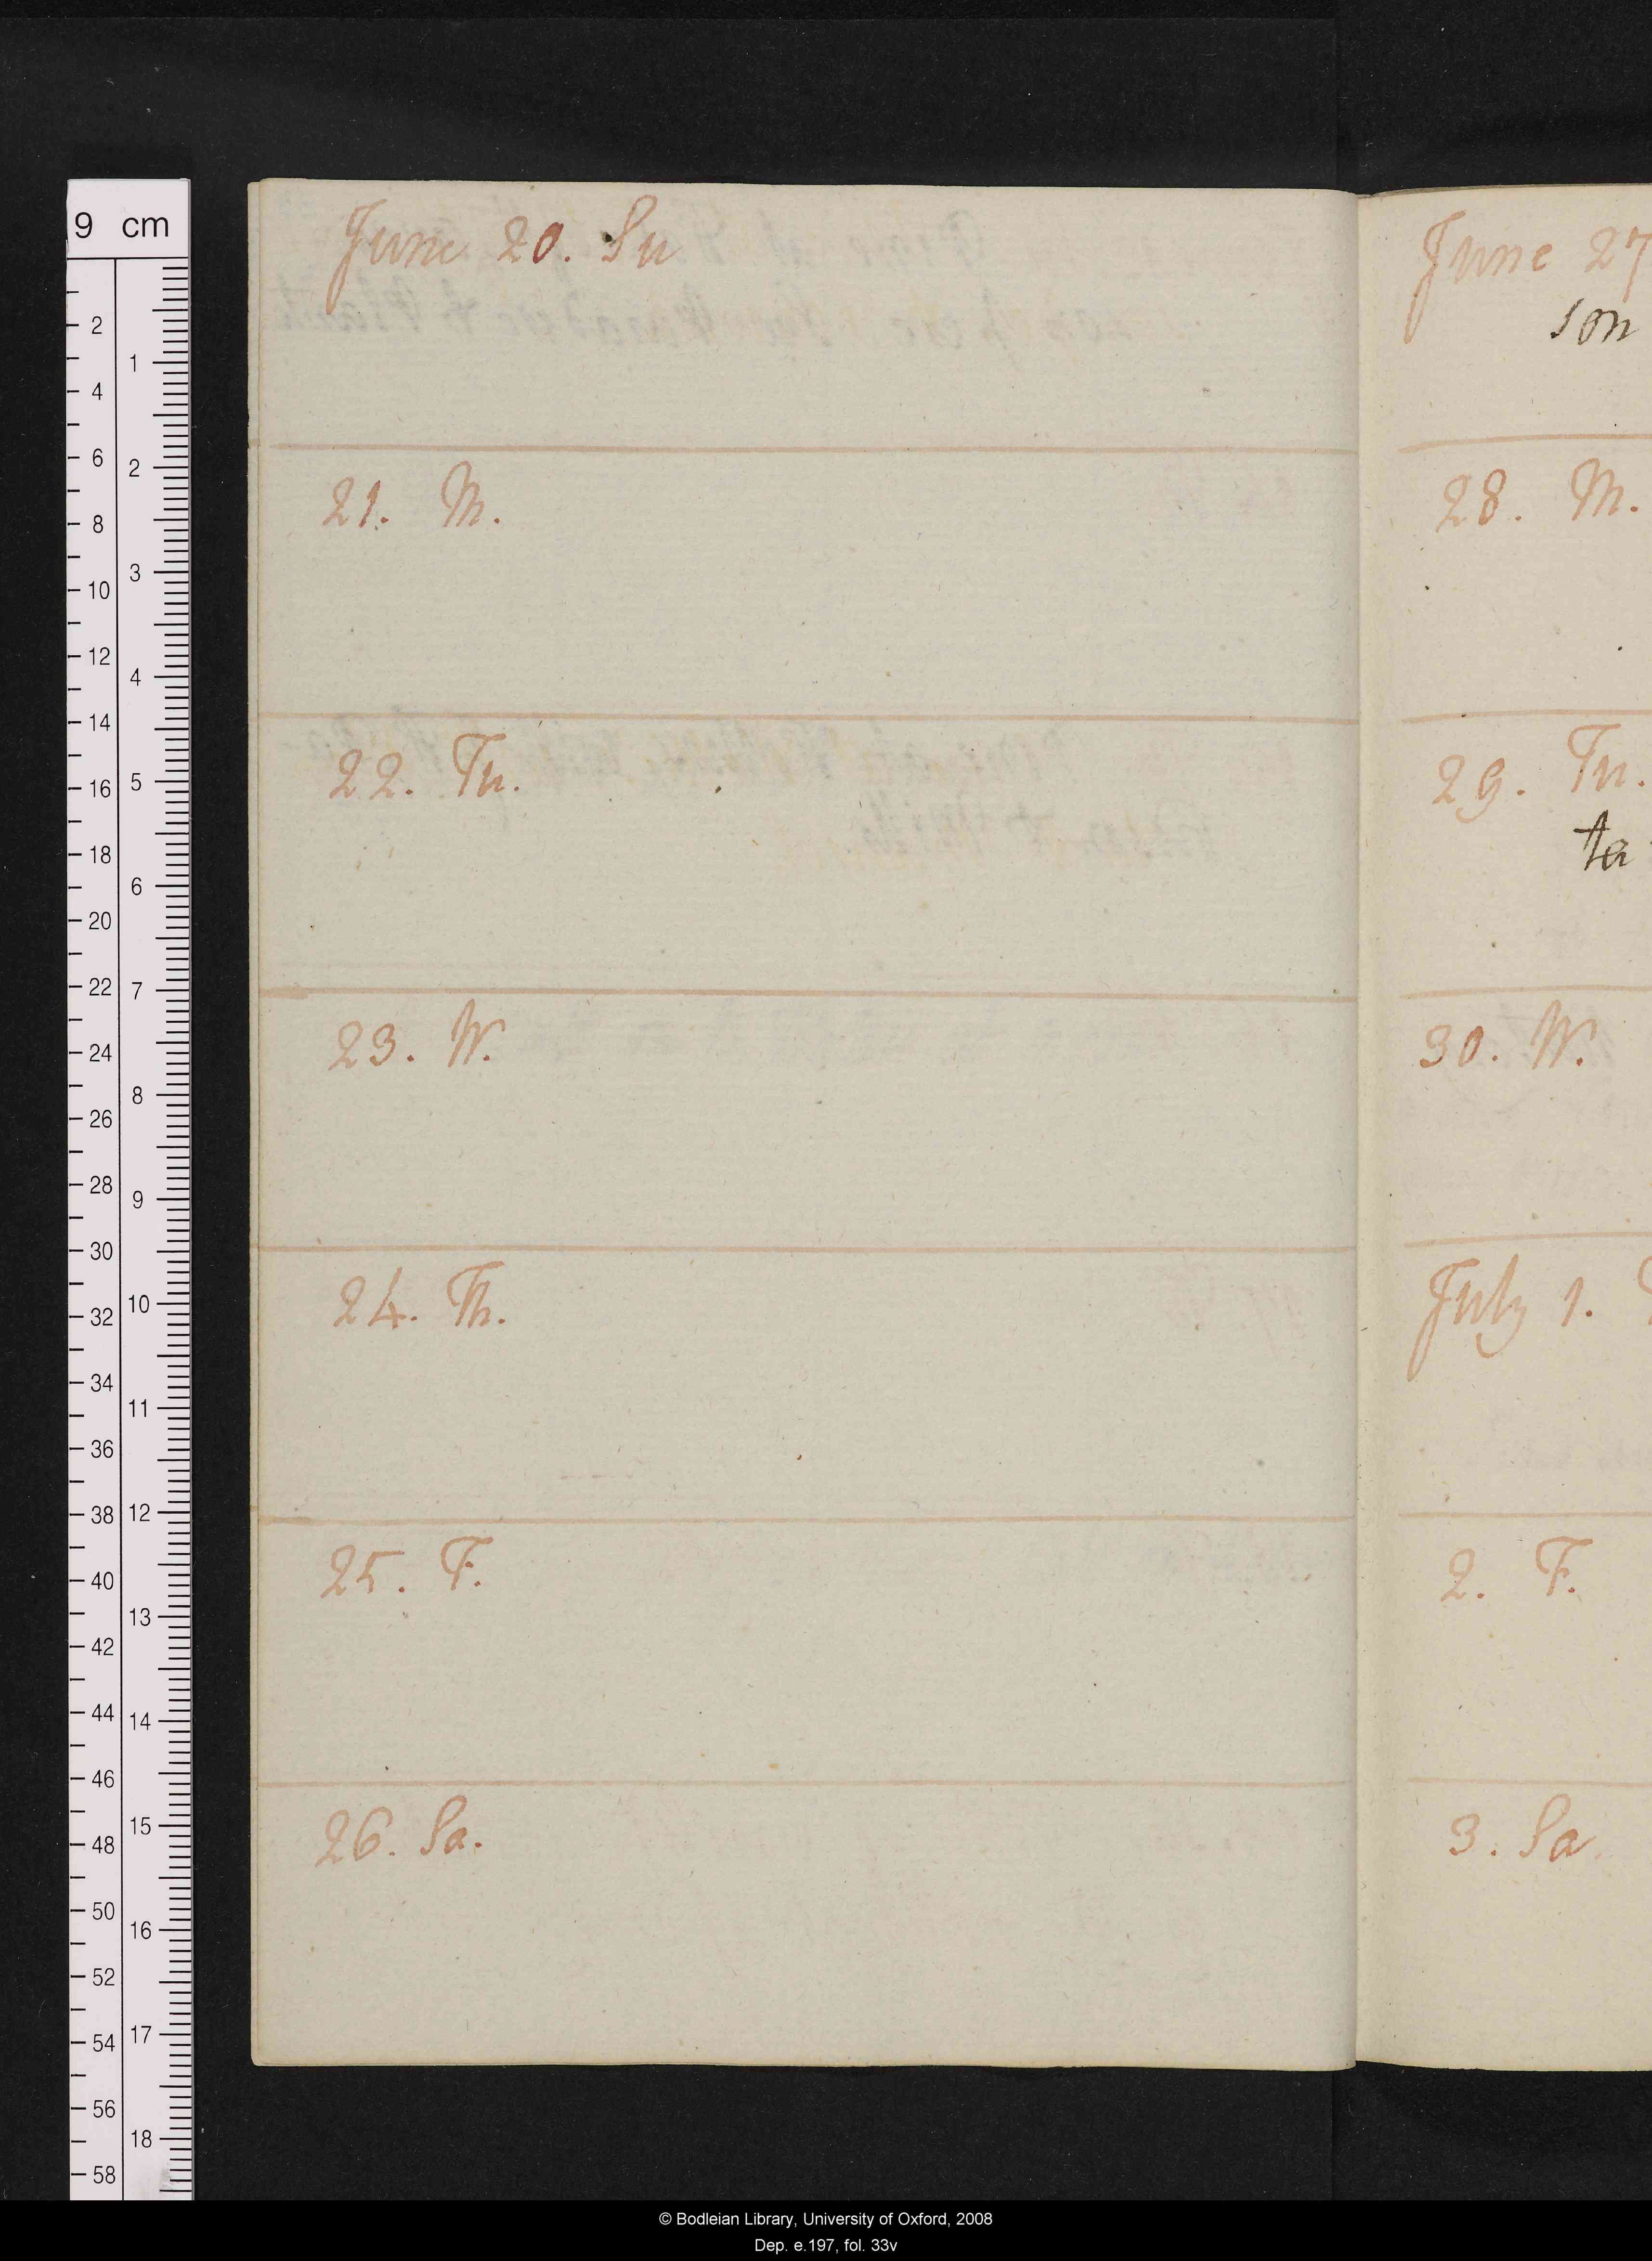 June 20. Su
21. M.
22. Tu.
23. W.
24. Th.
25. F.
26. Sa.
June 27
son
28. M.
29. Tu.
ta
30. W.
July 1.
2. F.
3. Sa
9 cm
2
4
6
8
10
12
14
16
18
20
22
24
26
28
30
32
34
36
38
40
42
44
46
48
50
52
54
56
58
1
2
3
4
5
6
7
8
9
10
11
12
13
14
15
16
17
18
© Bodleian Library, University of Oxford, 2008
Dep. e.197, fol. 33v